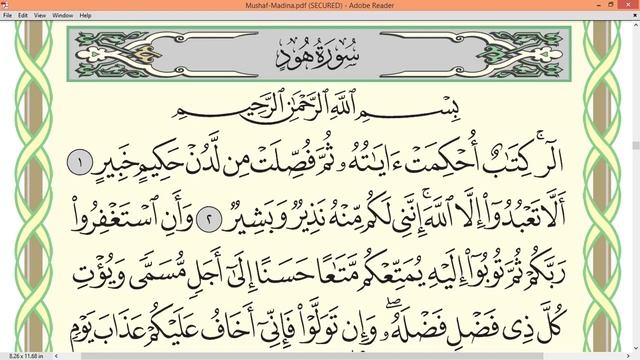 Mushaf-Madina.pdf (SECURED) - Adobe Reader
File Edit View Window Help
سُورَةُ هُودٍ
بِسْمِ اللَّهِ الرَّحْمَٰنِ الرَّحِيمِ
الٓرۚ كِتَٰبٌ أُحْكِمَتْ ءَايَٰتُهُۥ ثُمَّ فُصِّلَتْ مِن لَّدُنْ حَكِيمٍ خَبِيرٍ ١
أَلَّا تَعْبُدُوٓا۟ إِلَّا ٱللَّهَۚ إِنَّنِى لَكُم مِّنْهُ نَذِيرٌ وَبَشِيرٌ ٢ وَأَنِ ٱسْتَغْفِرُوا۟
رَبَّكُمْ ثُمَّ تُوبُوٓا۟ إِلَيْهِ يُمَتِّعْكُم مَّتَٰعًا حَسَنًا إِلَىٰٓ أَجَلٍ مُّسَمًّى وَيُؤْتِ
كُلَّ ذِى فَضْلٍ فَضْلَهُۥۖ وَإِن تَوَلَّوْا۟ فَإِنِّىٓ أَخَافُ عَلَيْكُمْ عَذَابَ يَوْمٍ
8.26 x 11.68 in